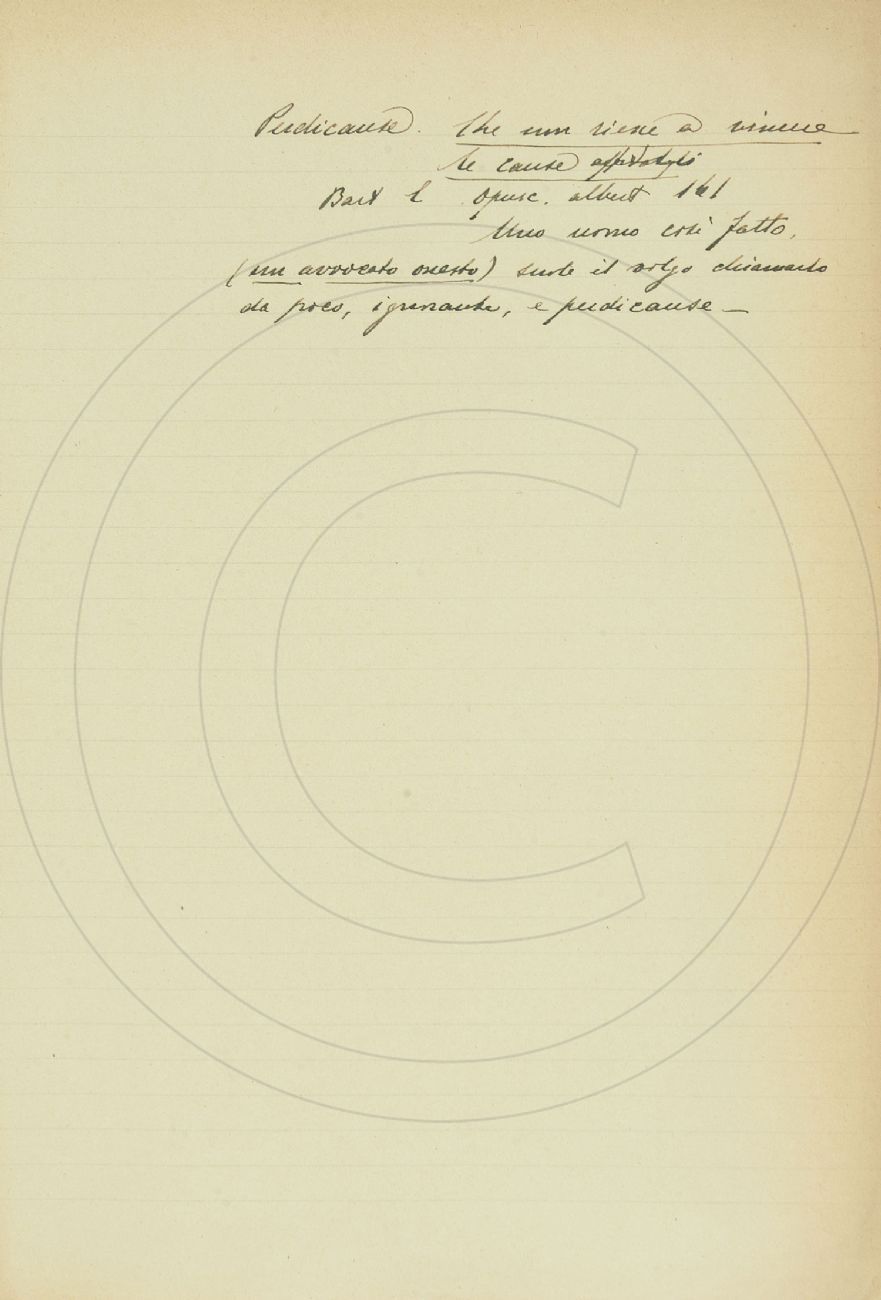 Perdicause. Che non riesce a vincere
le cause affidategli
Bart C Opusc. albert 141
Uno uomo così fatto,
(un avvocato onesto) suole il volgo chiamarlo
da poco, ignorante, e perdicause —